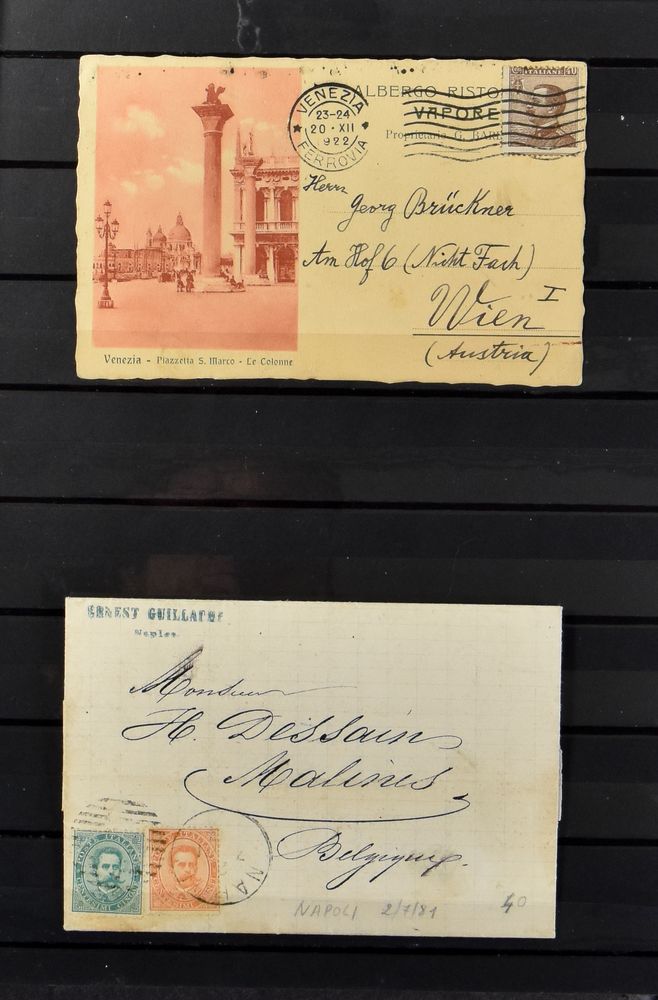 ALBERGO RISTO
VAPORE
Proprietario G. BARI
VENEZIA
23-24
20·XII
922
FERROVIA
Herrn
Georg Brückner
Am Hof 6 (Nicht Fach)
Wien I
(Austria)
Venezia - Piazzetta S. Marco - Le Colonne
ERNEST GUILLAUME
Naples
Monsieur
H. Dessain
Malines
Belgique.
POSTE ITALIANE
POSTE ITALIANE
NA
NAPOLI 2/7/81
40